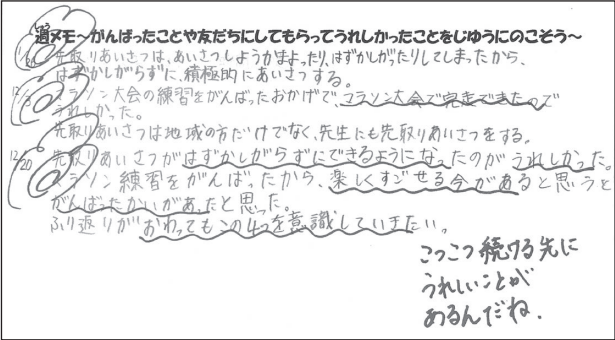 週メモ~がんばったことや友だちにしてもらってうれしかったことをじゆうにのこそう~
先取りあいさつは、あいさつしようかまよったり、はずかしがったりしてしまったから、
はずかしがらずに、積極的にあいさつする。
マラソン大会の練習をがんばったおかげで、マラソン大会で完走できたので
うれしかった。
先取りあいさつは地域の方だけでなく、先生にも先取りあいさつをする。
12/20 先取りあいさつがはずかしがらずにできるようになったのがうれしかった。
マラソン練習をがんばったから、楽しくすごせる今があると思うと
がんばったかいがあったと思った。
ふり返りがおわってもこの4つを意識していきたい。
こつこつ続ける先に
うれしいことが
あるんだね.